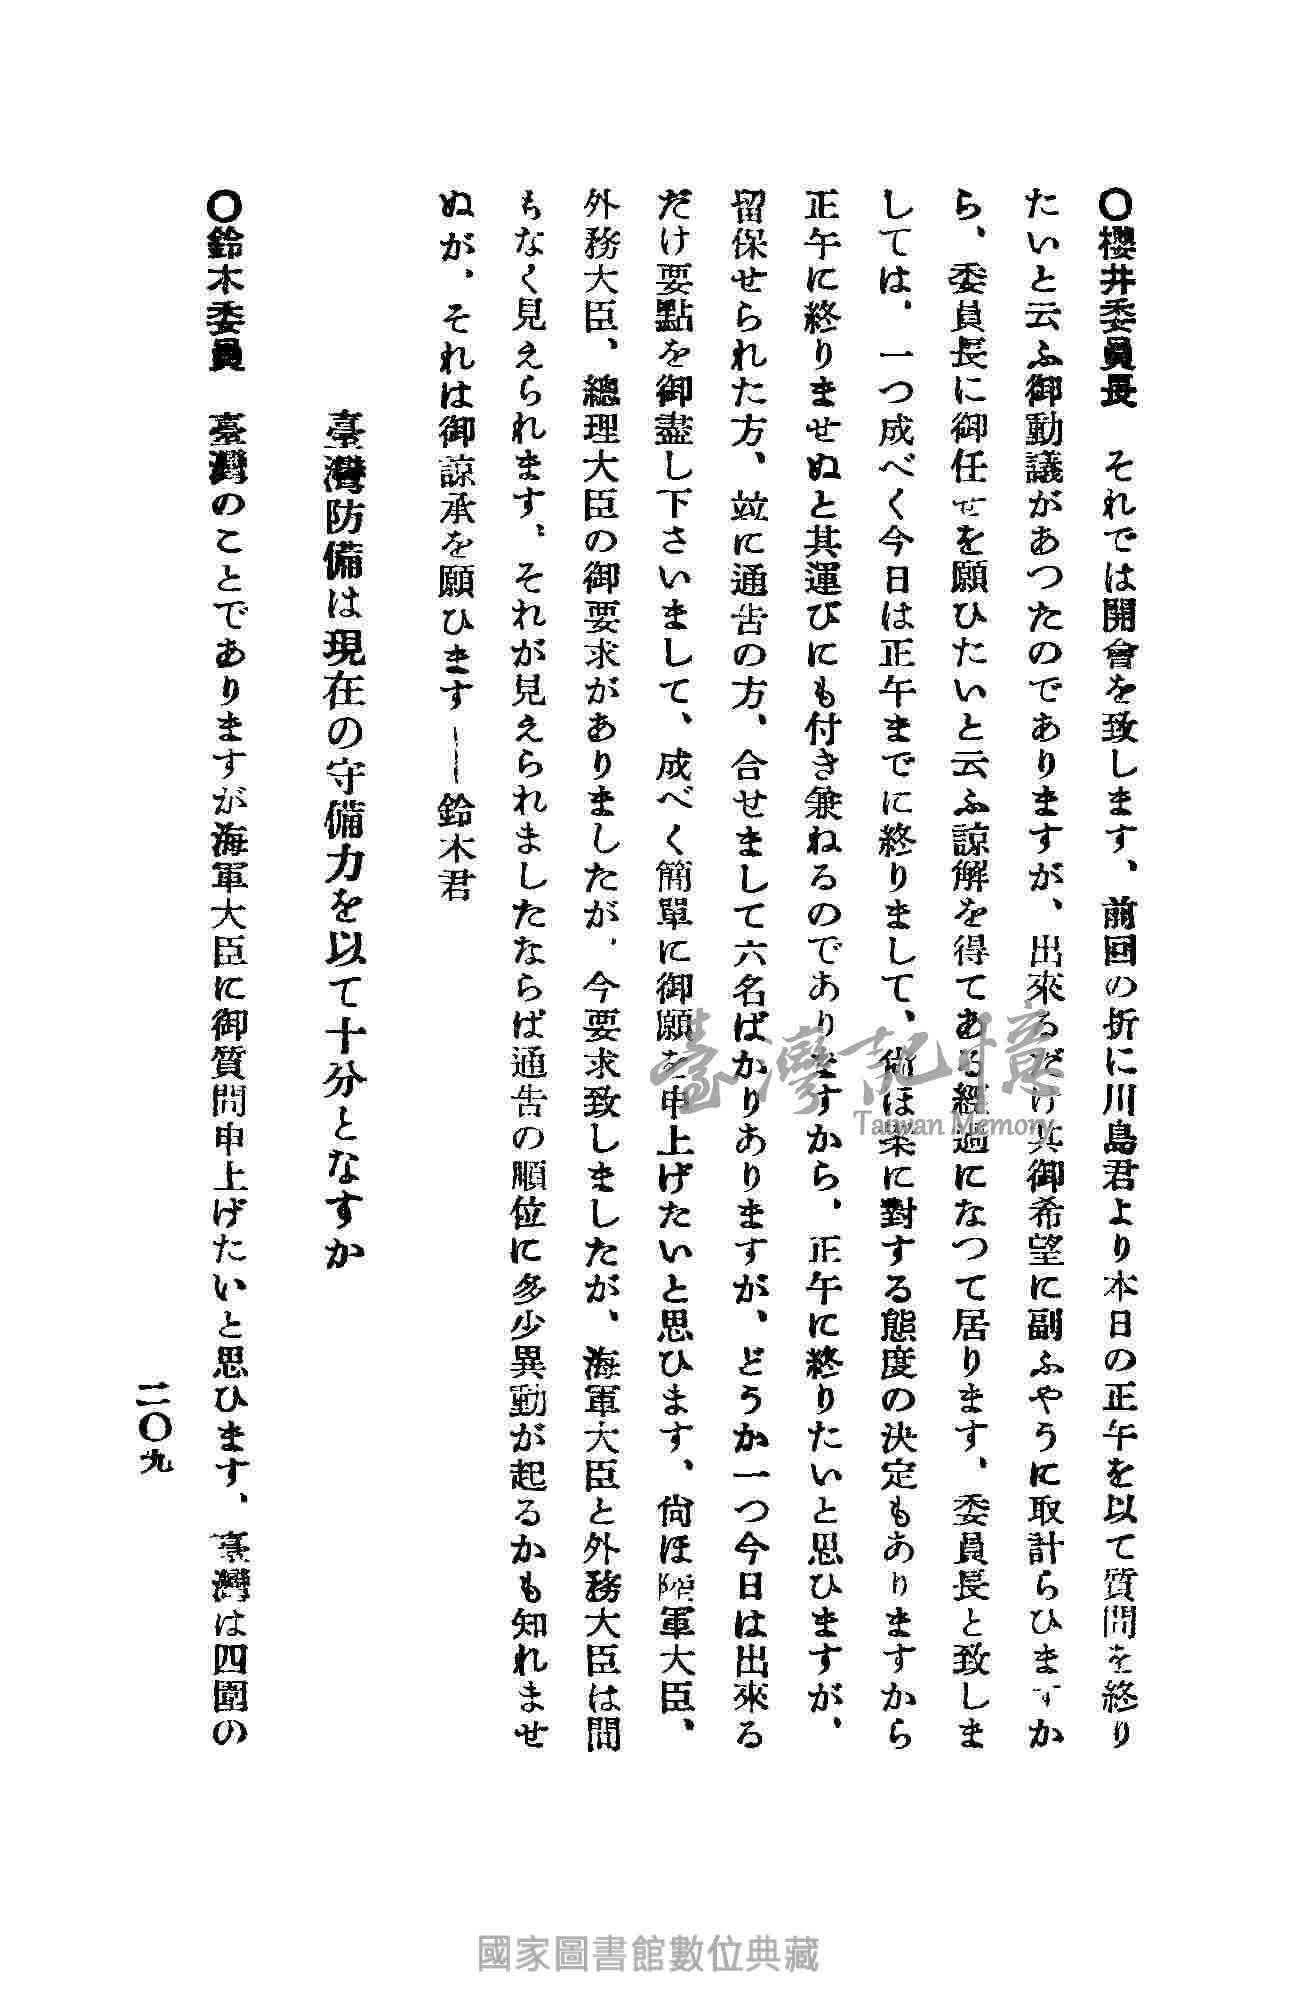 〇櫻井委員長　それでは開會を致します、前回の折に川島君より本日の正午を以て質問を終り
たいと云ふ御動議があつたのでありますが、出來るだけ其御希望に副ふやうに取計らひますか
ら、委員長に御任せを願ひたいと云ふ諒解を得てある經過になつて居ります、委員長と致しま
しては、一つ成べく今日は正午までに終りまして、尚ほ案に對する態度の決定もありますから
正午に終りませぬと其運びにも付き兼ねるのでありますから、正午に終りたいと思ひますが、
留保せられた方、竝に通告の方、合せまして六名ばかりありますが、どうか一つ今日は出來る
だけ要點を御盡し下さいまして、成べく簡單に御願を申上げたいと思ひます、尚ほ陸軍大臣、
外務大臣、總理大臣の御要求がありましたが、今要求致しましたが、海軍大臣と外務大臣は間
もなく見えられます、それが見えられましたならば通告の順位に多少異動が起るかも知れませ
ぬが、それは御諒承を願ひます――鈴木君
臺灣防備は現在の守備力を以て十分となすか
〇鈴木委員　臺灣のことでありますが海軍大臣に御質問申上げたいと思ひます、臺灣は四圍の
二〇九
臺灣記憶
Taiwan Memory
國家圖書館數位典藏